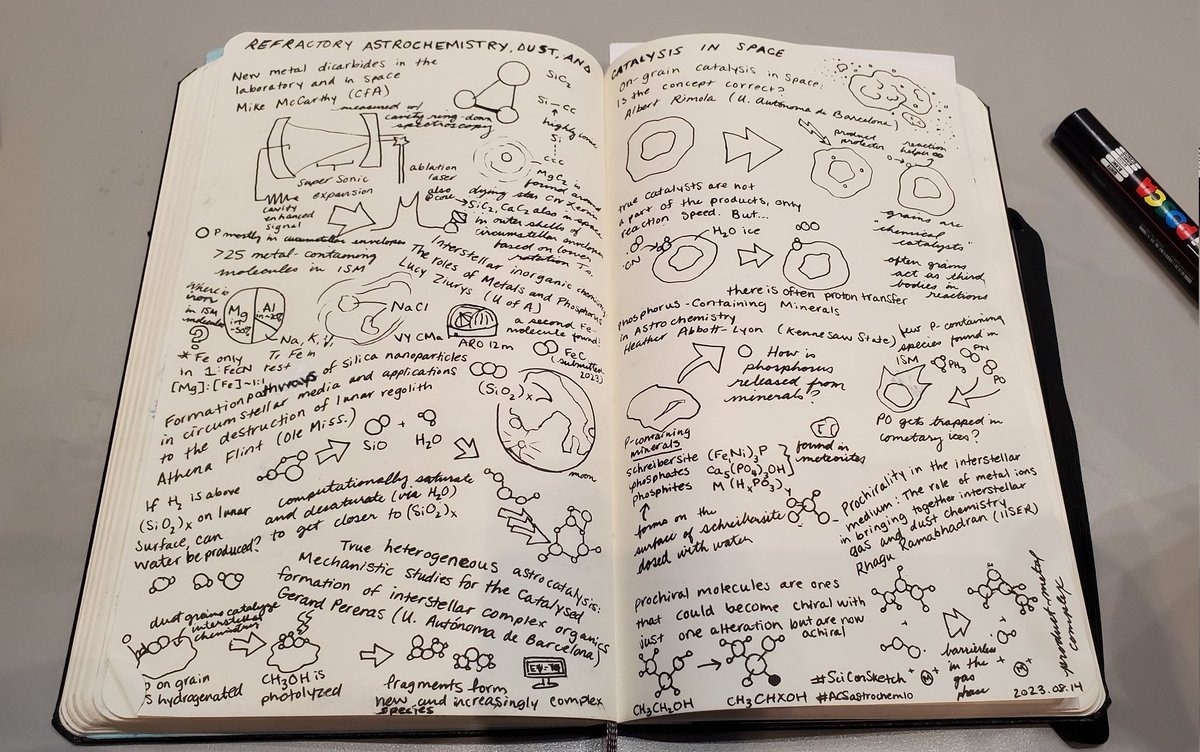 REFRACTORY ASTROCHEMISTRY, DUST, AND
CATALYSIS IN SPACE
New metal dicarbides in the
laboratory and in space
Mike McCarthy (CfA)
measured w/
cavity ring-down
spectroscopy
SiC2
Si—CC
highly ionic
Si
C≡C
Super Sonic
expansion
ablation
laser
cavity
enhanced
signal
MgC2 is
found around
dying star CW Leonis
also
SiC2, CaC2 also in space
in outer shells of
circumstellar envelope
based on lower
rotation Te.
P mostly in circumstellar envelopes
>25 metal-containing
molecules in ISM
Interstellar inorganic chemistry:
The roles of Metals and Phosphorus
Lucy Ziurys (U of A)
Where is
iron
in ISM
molecules
?
Mg
in ~50%
Al
in ~25%
Na, K, V,
Ti, Fe in
rest
NaCl
VY CMa
ARO 12m
a second Fe-
molecule found:
FeC
(submitted
2023)
* Fe only
in 1: FeCN
[Mg]:[Fe]~1:1
Formation pathways of silica nanoparticles
in circumstellar media and applications
to the destruction of lunar regolith
Athena Flint (Ole Miss.)
(SiO2)x
moon
SiO
+
H2O
If H2 is above
(SiO2)x on lunar
surface, can
water be produced?
computationally saturate
and desaturate (via H2O)
to get closer to (SiO2)x
True heterogeneous astrocatalysis:
Mechanistic Studies for the Catalysed
formation of interstellar complex organics
Gerard Pereras (U. Autónoma de Barcelona)
dust grains catalyze
interstellar
chemistry
on grain
is hydrogenated
CH3OH is
photolyzed
fragments form
new and increasingly complex
species
On-grain catalysis in space:
Is the concept correct?
Albert Rimola (U. Autónoma de Barcelone)
product
protector
reaction
helper
true catalysts are not
a part of the products, only
reaction speed. But...
grains are
"chemical
catalysts"
H2O ice
CN
often grains
act as third
bodies in
reactions
there is often proton transfer
Phosphorus-Containing Minerals
in Astrochemistry
Heather Abbott-Lyon (Kennesaw State)
few P-containing
species found in
ISM
PH3
PN
PO
How is
phosphorus
released from
minerals?
PO gets trapped in
cometary ices?
P-containing
minerals
schreibersite (Fe,Ni)3P
phosphates Ca5(PO4)3OH
phosphites M(HxPO3)y
found in
meteorites
forms on the
surface of schreibersite
dosed with water
Prochirality in the interstellar
medium: The role of metal ions
in bringing together interstellar
gas and dust chemistry
Rhagu Ramabhadran (IISER)
prochiral molecules are ones
that could become chiral with
just one alteration but are now
achiral
CH3CH2OH
CH3CHXOH
+
M+
barrierless
in the
gas
phase
+
M+
product-metal
complex
#SciConSketch
#ACSastrochem10
2023.08.14
POSCA